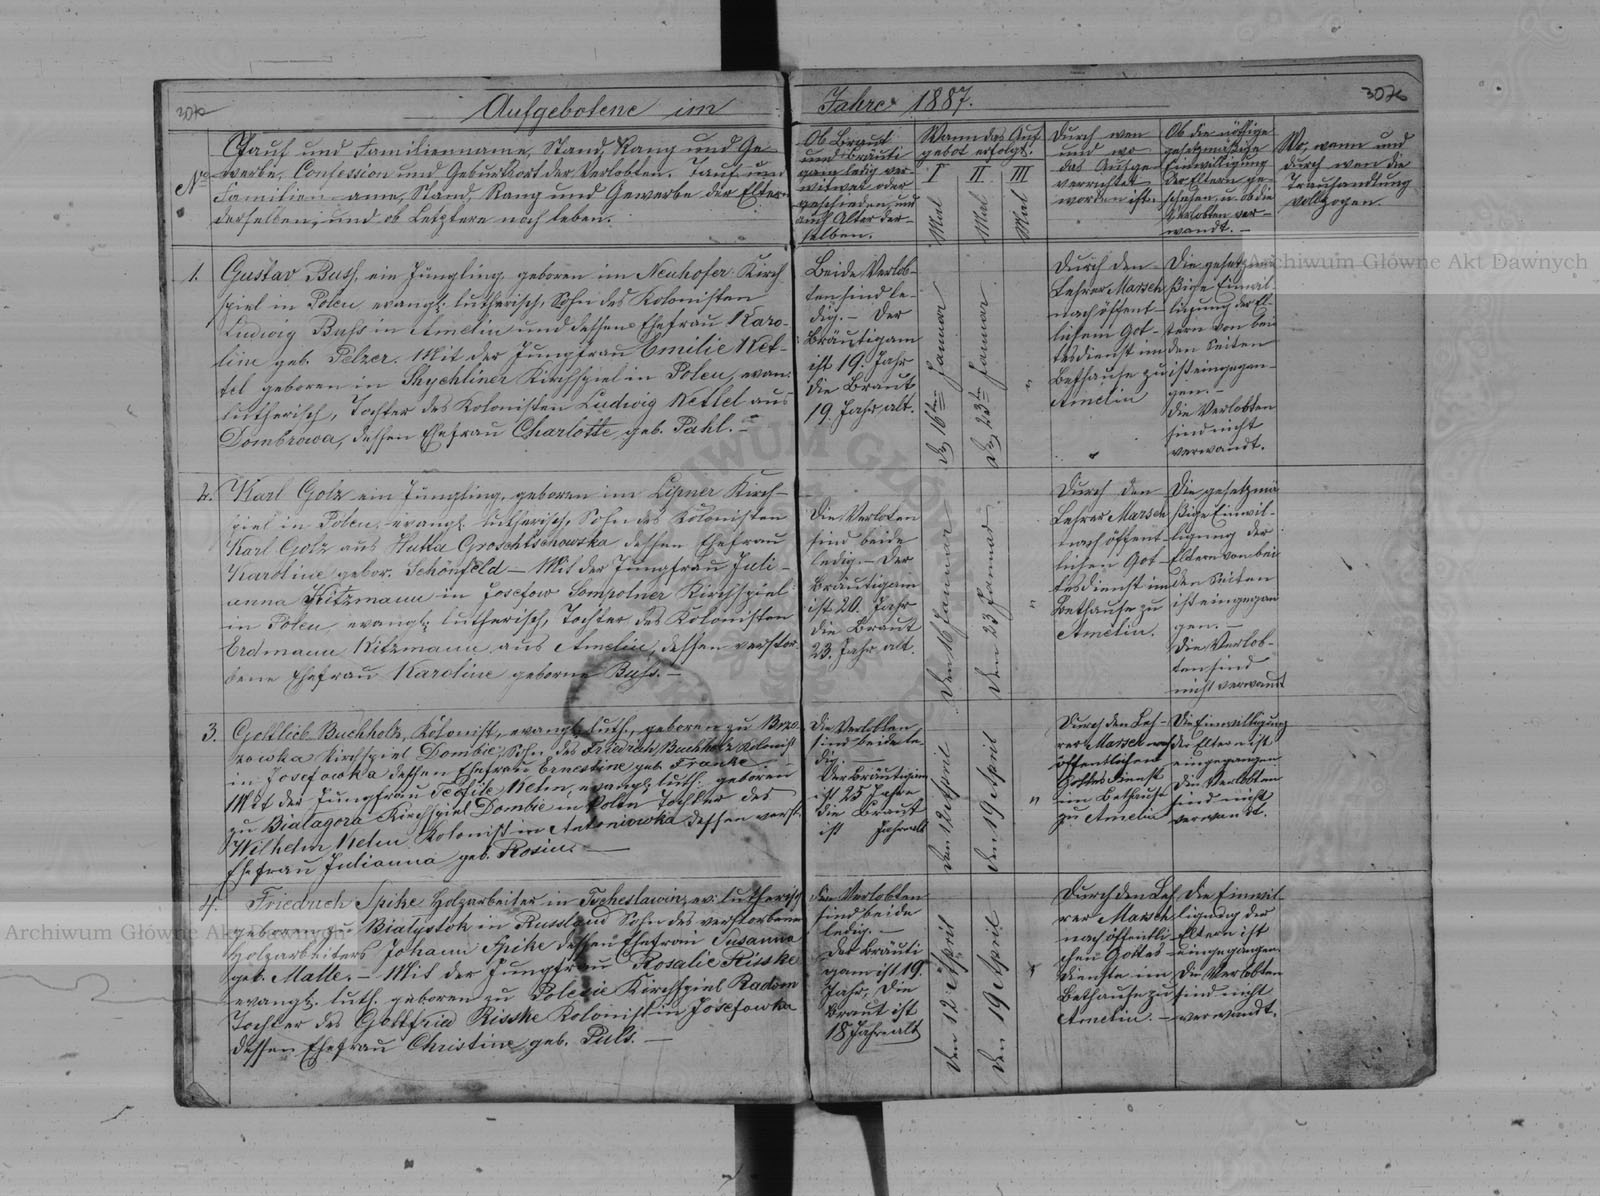 Aufgebotene im Jahre 1887.
307b
307c
No
Tauf und Familienname, Stand, Rang und Ge-
werbe, Confession und Geburtsort der Verlobten. Tauf und
Familienname, Stand, Rang und Gewerbe der Eltern
derselben, und ob Letztere noch leben.
Ob Braut
und Bräuti
gam ledig ver-
witwet oder
geschieden, und
auch Alter der-
selben.
Wann das Auf-
gebot erfolgt.
I Mal
II Mal
III Mal
Durch wen
und wo
das Aufge
verrichtet
worden ist.
Ob die nöthige
gesetzmäßige
Einwilligung
der Eltern ge-
schehen, u. ob die
Verlobten ver-
wandt. -
Wo, wann und
durch wen die
Trauhandlung
vollzogen.
1.
Gustav Buss, ein Jüngling, geboren im Neuhofer Kirch
spiel in Polen, evangl: lutherisch, Sohn des Kolonisten
Ludwig Buss in Amelin und dessen Ehefrau Karo-
line geb. Pelzer. Mit der Jungfrau Emilie Net-
tel geboren in Kirchspiel in Polen, evan:
lutherisch, Tochter des Kolonisten Ludwig Nettel aus
Dombrowa, dessen Ehefrau Charlotte, geb. Pahl. -
Beide Verlob-
ten sind le-
dig. - Der
Bräutigam
ist 19. Jahr
die Braut
19. Jahr alt.
den 16ten Januar
den 23ten Januar
"
Durch den
Lehrer Marsch
nach öffent-
lichem Got-
tesdienst im
Bethause zu
Amelin
Die gesetzmä
ßige Einwil-
ligung der El-
tern von bei
den Seiten
ist eingegan-
gen. -
die Verlobten
sind nicht
verwandt.
2.
Karl Golz ein Jüngling, geboren im Lipner Kirch-
spiel in Polen, evangl. lutherisch, Sohn des Kolonisten
Karl Golz aus Hutta Groschtschowska dessen Ehefrau
Karoline gebor. Schönfeld - Mit der Jungfrau Juli-
anna Kitzmann in Josefow Sompolner Kirchspiel
in Polen, evangl: lutherisch, Tochter des Kolonisten
Erdmann Kitzmann aus Amelin, dessen verstor-
bene Ehefrau Karoline geborne Buss. -
Die Verloten
sind beide
ledig. - Der
Bräutigam
ist 20. Jahr
die Braut
23. Jahr alt.
den 16 Januar
den 23 Januar
"
Durch den
Lehrer Marsch
nach öffent-
lichen Got-
tesdienst im
Bethause zu
Amelin.
Die gesetzmä
ßige Einwil-
ligung der
Eltern von bei
den Seiten
ist eingegan
gen. -
Die Verlob-
ten sind
nicht verwandt
3.
Gottlieb Buchholz, Kolonist, evangl: luth., geboren zu Brzo
zowka Kirchspiel Dombie, Sohn des Friedrich Buchholz Kolonist
in Josefowka dessen Ehefrau Ernestine geb Franke. -
Mit der Jungfrau Teofile Nehn, evangl: luth: geboren
zu Bialagora Kirchspiel Dombie in Polen Tochter des
Wilhelm Nehn Kolonist in Antoniowka dessen verst.
Ehefrau Julianna geb. Rosin. -
Die Verlobten
sind beide le
dig. -
Der Bräutigam
ist 25 Jahre
die Braut
ist Jahr alt
den 12 April
den 19 April
"
Durch den Leh-
rer Marsch nach
öffentlichem
Gottesdienst
im Bethause
zu Amelin
Die Einwilligung
der Eltern ist
eingegangen
Die Verlobten
sind nicht
verwandt.
4.
Friedrich Spike Holzarbeiter in ev: lutherisch
geboren zu Bialystok in Russland Sohn des verstorbenen
Holzarbeiters Johann Spike dessen Ehefrau Susanna
geb. Malle, - Mit der Jungfrau Rosalie Risske
evangl: luth. geboren zu Polezie Kirchspiel Radom
Tochter des Gottfried Risske Kolonist in Josefowka
dessen Ehefrau Christine geb. Puls. -
Die Verlobten
sind beide
ledig. -
Der Bräuti
gam ist 19.
Jahr, Die
Braut ist
18 Jahr alt
den 12 April
den 19 April
Durch den Leh
rer Marsch
nach öffentli
chen Gottes
dienste im
Bethause zu
Amelin. -
Die Einwil
ligung der
Eltern ist
eingegangen
Die Verlobten
sind nicht
verwandt.
Archiwum Główne Akt Dawnych
Archiwum Główne Akt Dawnych